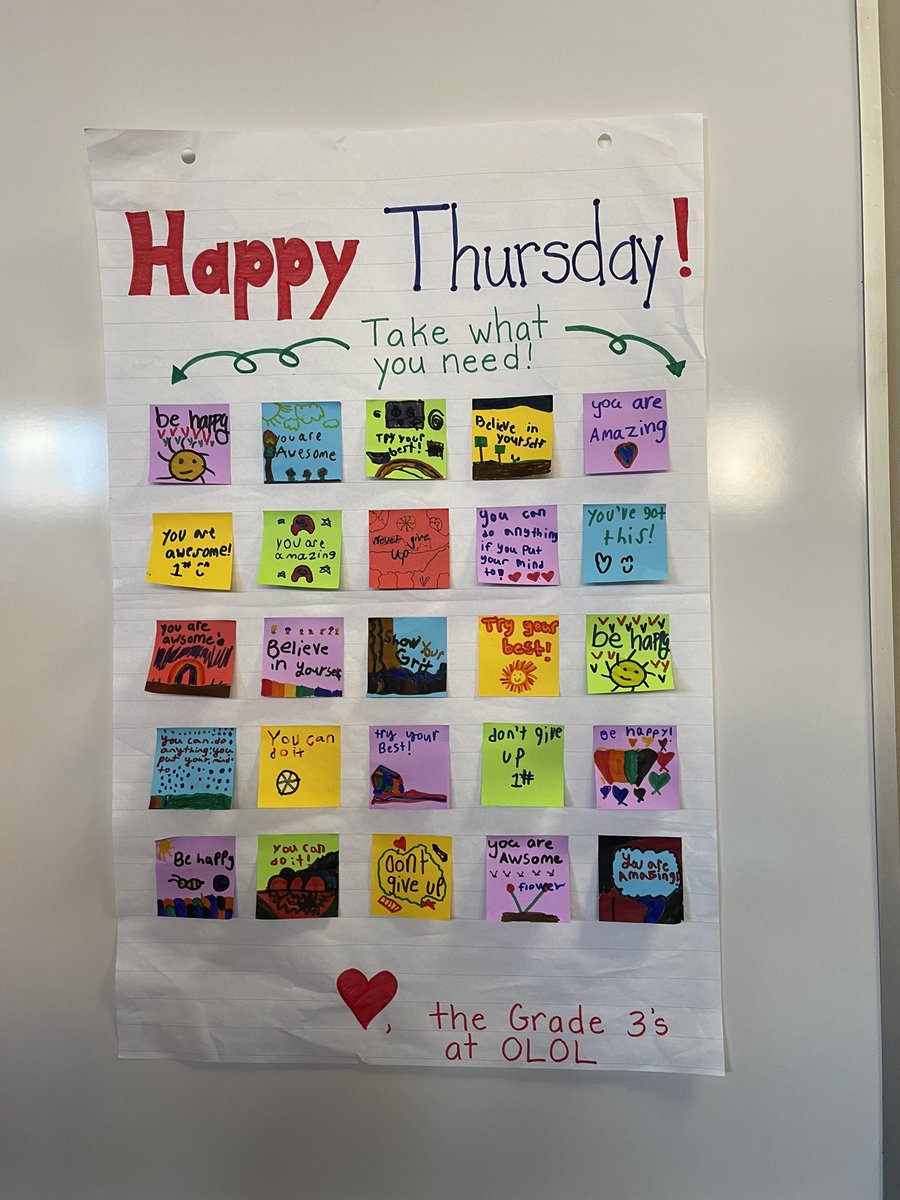 Happy Thursday!
Take what
you need!
be happy
you are
Awesome
Try your
best!
Believe in
yourself
you are
Amazing
you are
awesome!
1#
you are
amazing
never give
up
you can
do anything
if you put
your mind
to!
you've got
this!
you are
awsome!
Believe
in yourself
Show your
Grit
Try your
best!
be happy
you can do
anything you
put your mind
to
You can
do it
try your
Best!
don't give
up
1#
Be happy!
Be happy
you can
do it!
Dont
give up
you are
AWsome
flower
You are
Amazing!
, the Grade 3's
at OLOL